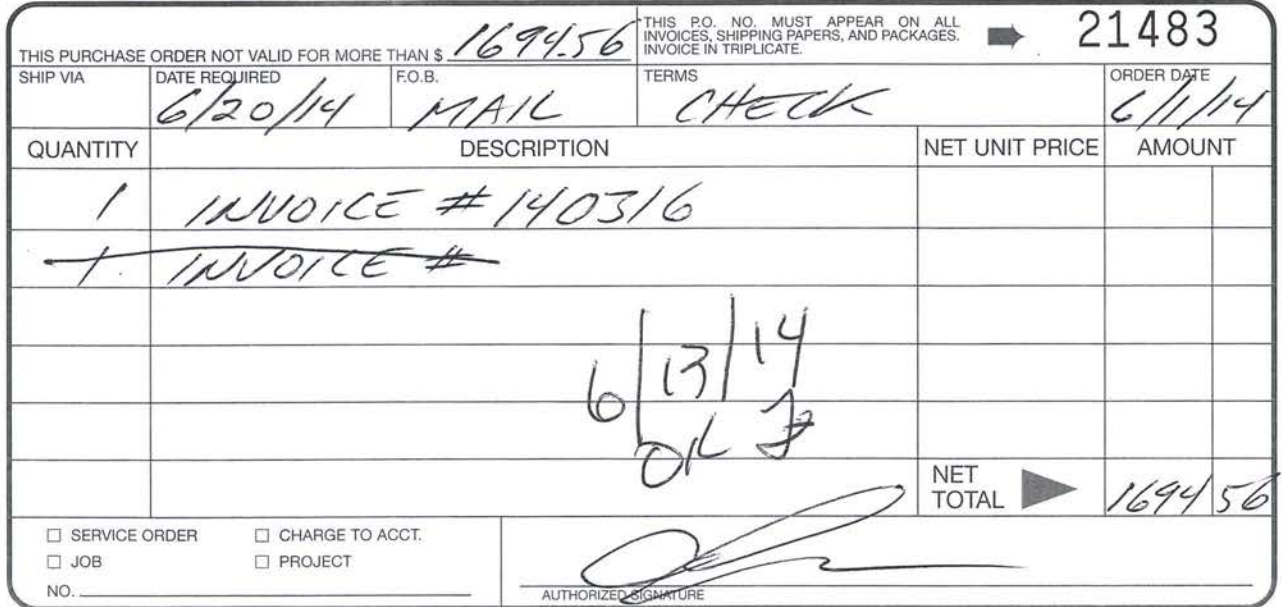 THIS PURCHASE ORDER NOT VALID FOR MORE THAN $ 1694.56
THIS P.O. NO. MUST APPEAR ON ALL
INVOICES, SHIPPING PAPERS, AND PACKAGES.
INVOICE IN TRIPLICATE.
21483
SHIP VIA DATE REQUIRED F.O.B. TERMS ORDER DATE
6/20/14 MAIL CHECK 6/1/14
QUANTITY DESCRIPTION NET UNIT PRICE AMOUNT
1 INVOICE # 140316
1. INVOICE #
6/13/14
OK
NET
TOTAL 1694 56
SERVICE ORDER CHARGE TO ACCT.
JOB PROJECT
NO.
AUTHORIZED SIGNATURE